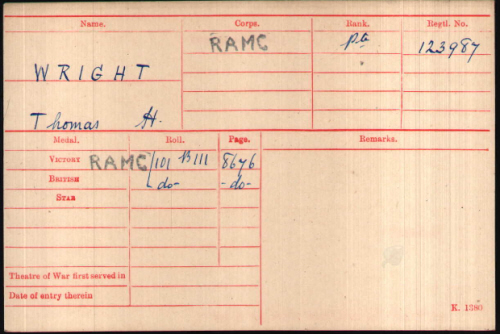 Name. Corps. Rank. Regtl. No.
RAMC Pte 123987
WRIGHT
Thomas H.
Medal. Roll. Page. Remarks.
VICTORY RAMC/101 B111 8676
BRITISH -do- -do-
STAR
Theatre of War first served in
Date of entry therein
K. 1380